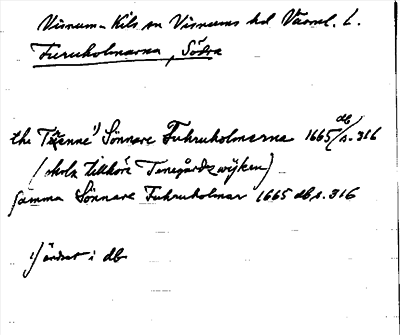 Visnum-Kils sn Visnums hd Värml. L.
Furuholmarna, Södra
the Tuenne¹⁾ Sönnare Fuhruholmerna 1665 db/s. 316
(skola tillhöra Tanegårdz wijken)
samma Sönnare Fuhruholmar 1665 db s. 316
1) ändrat i db